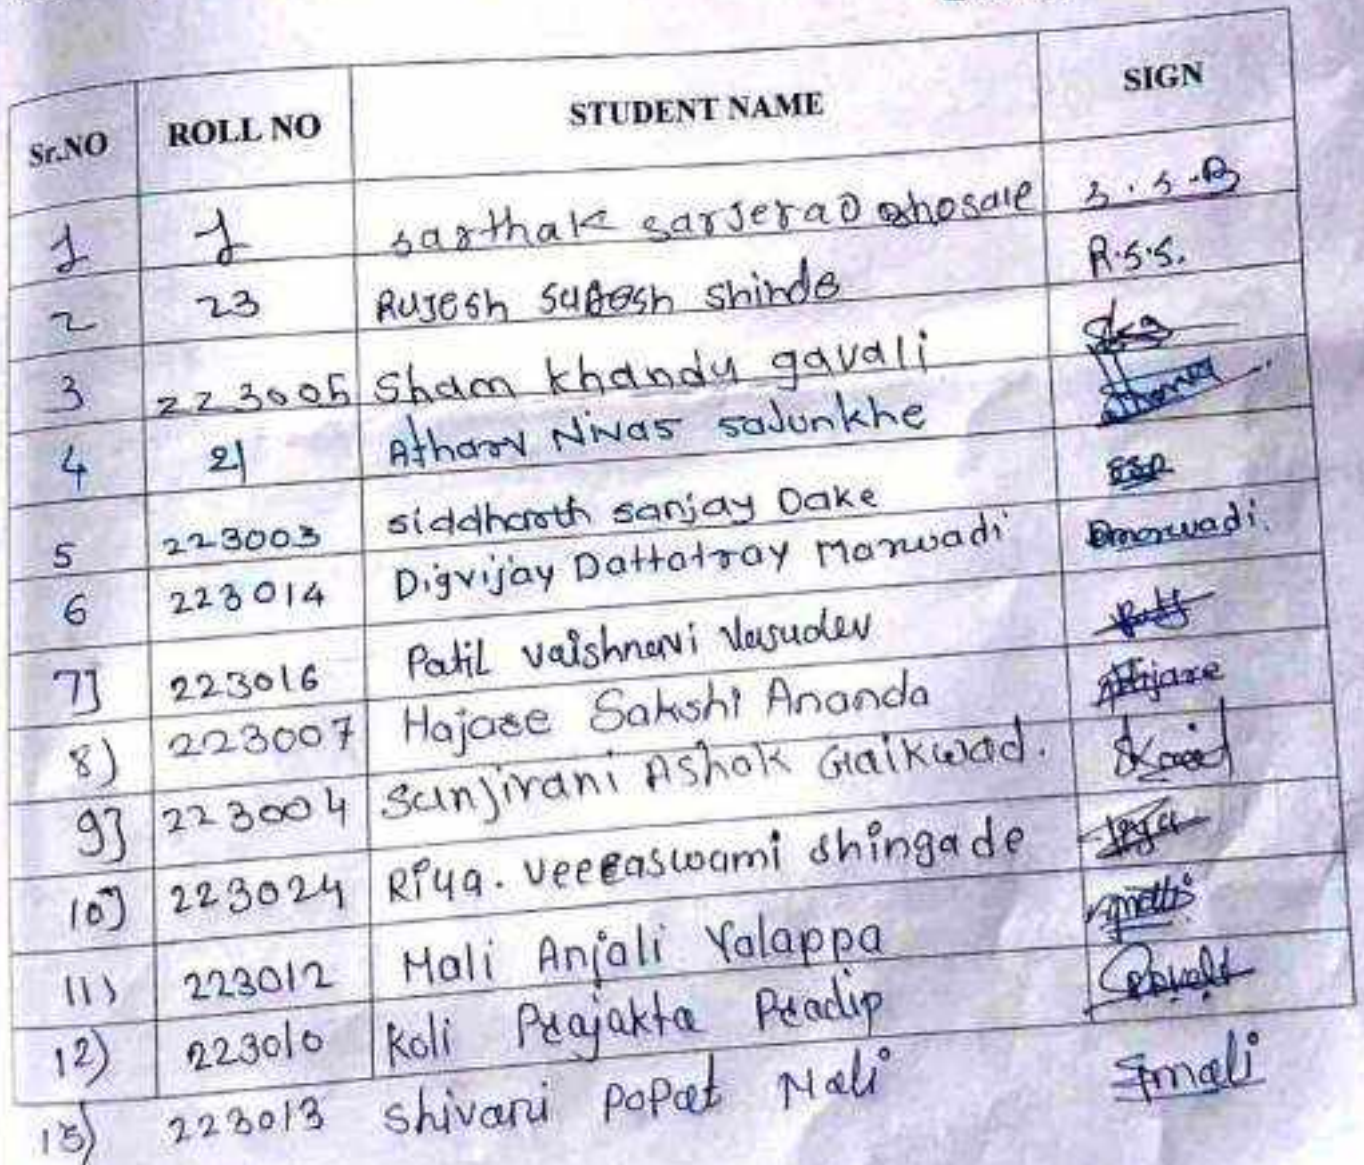 Sr.NO ROLL NO STUDENT NAME SIGN
1 1 sarthak sarjerao Bhosale S.S.B
2 23 Rujesh Suresh Shinde R.S.S.
3 223005 Sham khandu gavali
4 21 Atharv Nivas salunkhe
5 223003 siddharth sanjay Dake SSD
6 223014 Digvijay Dattatray Marwadi Dmarwadi.
7] 223016 Patil Vaishnavi Vasudev
8) 223007 Hajare Sakshi Ananda
9] 223004 Sanjivani Ashok Gaikwad.
10] 223024 Riya. Veeraswami Shingade
11) 223012 Mali Anjali Yalappa
12) 223010 Koli Prajakta Pradip
13) 223013 Shivani Popat Mali Smali